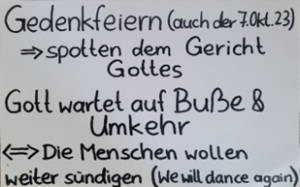 Gedenkfeiern (auch der 7.Okt.23)
⇒ spotten dem Gericht
Gottes
Gott wartet auf Buße &
Umkehr
⇔ Die Menschen wollen
weiter sündigen (We will dance again)